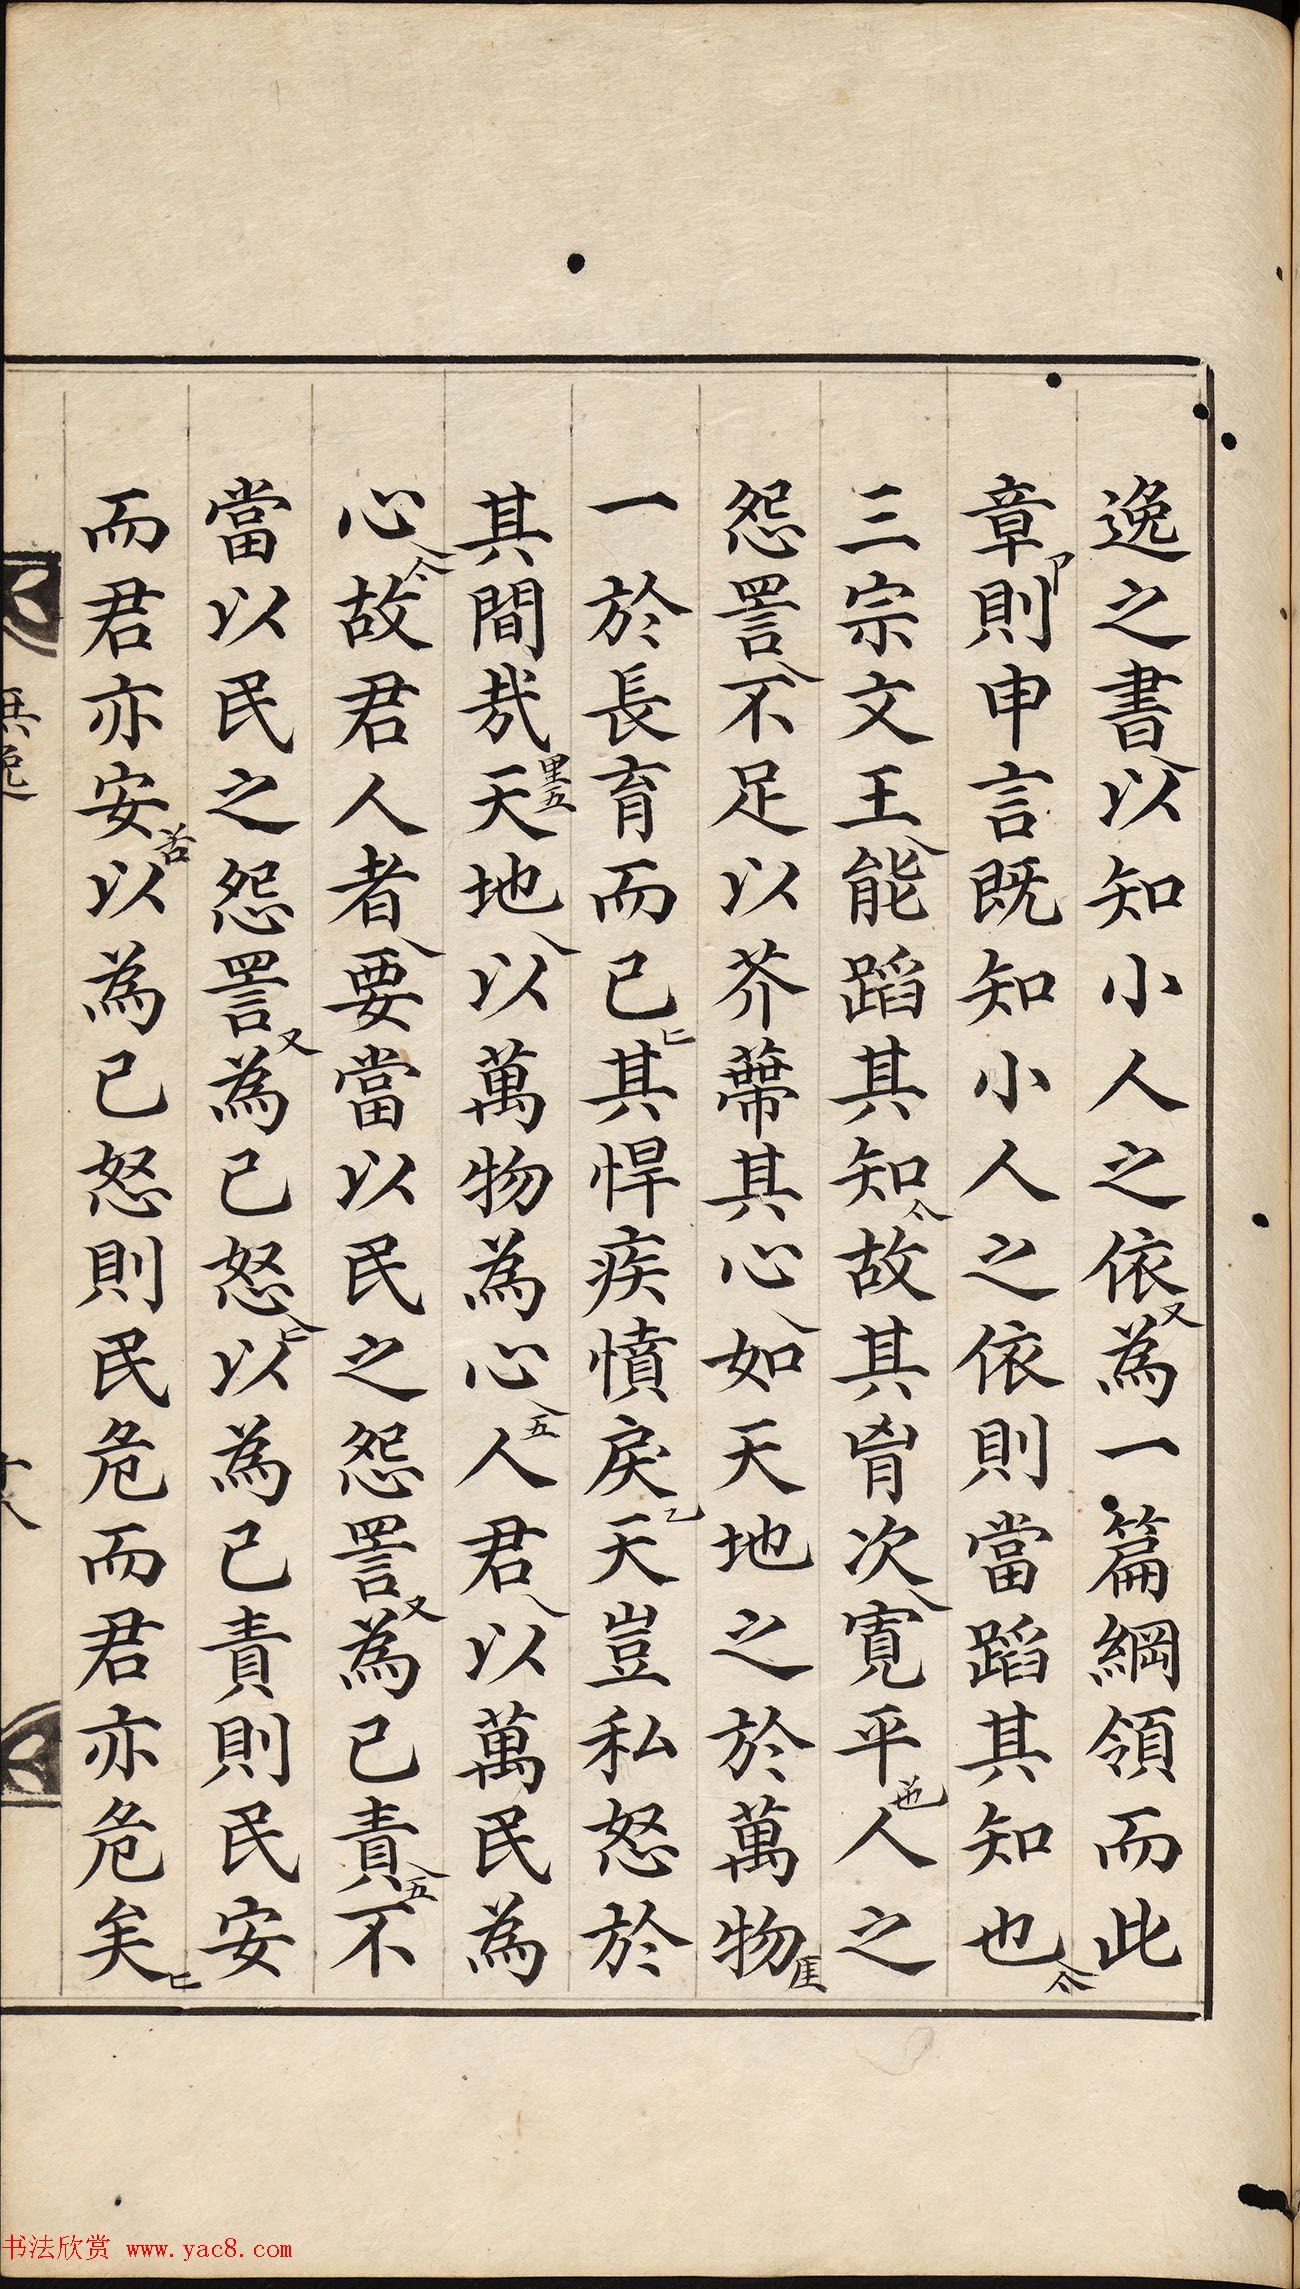 逸之書以知小人之依為一篇綱領而此
章則申言既知小人之依則當蹈其知也
三宗文王能蹈其知故其胷次寬平人之
怨詈不足以芥蔕其心如天地之於萬物
一於長育而已其悍疾憤戾天豈私怒於
其間㢤天地以萬物為心人君以萬民為
心故君人者要當以民之怨詈為己責不
當以民之怨詈為己怒以為己責則民安
而君亦安以為己怒則民危而君亦危矣
书法欣赏 www.yac8.com